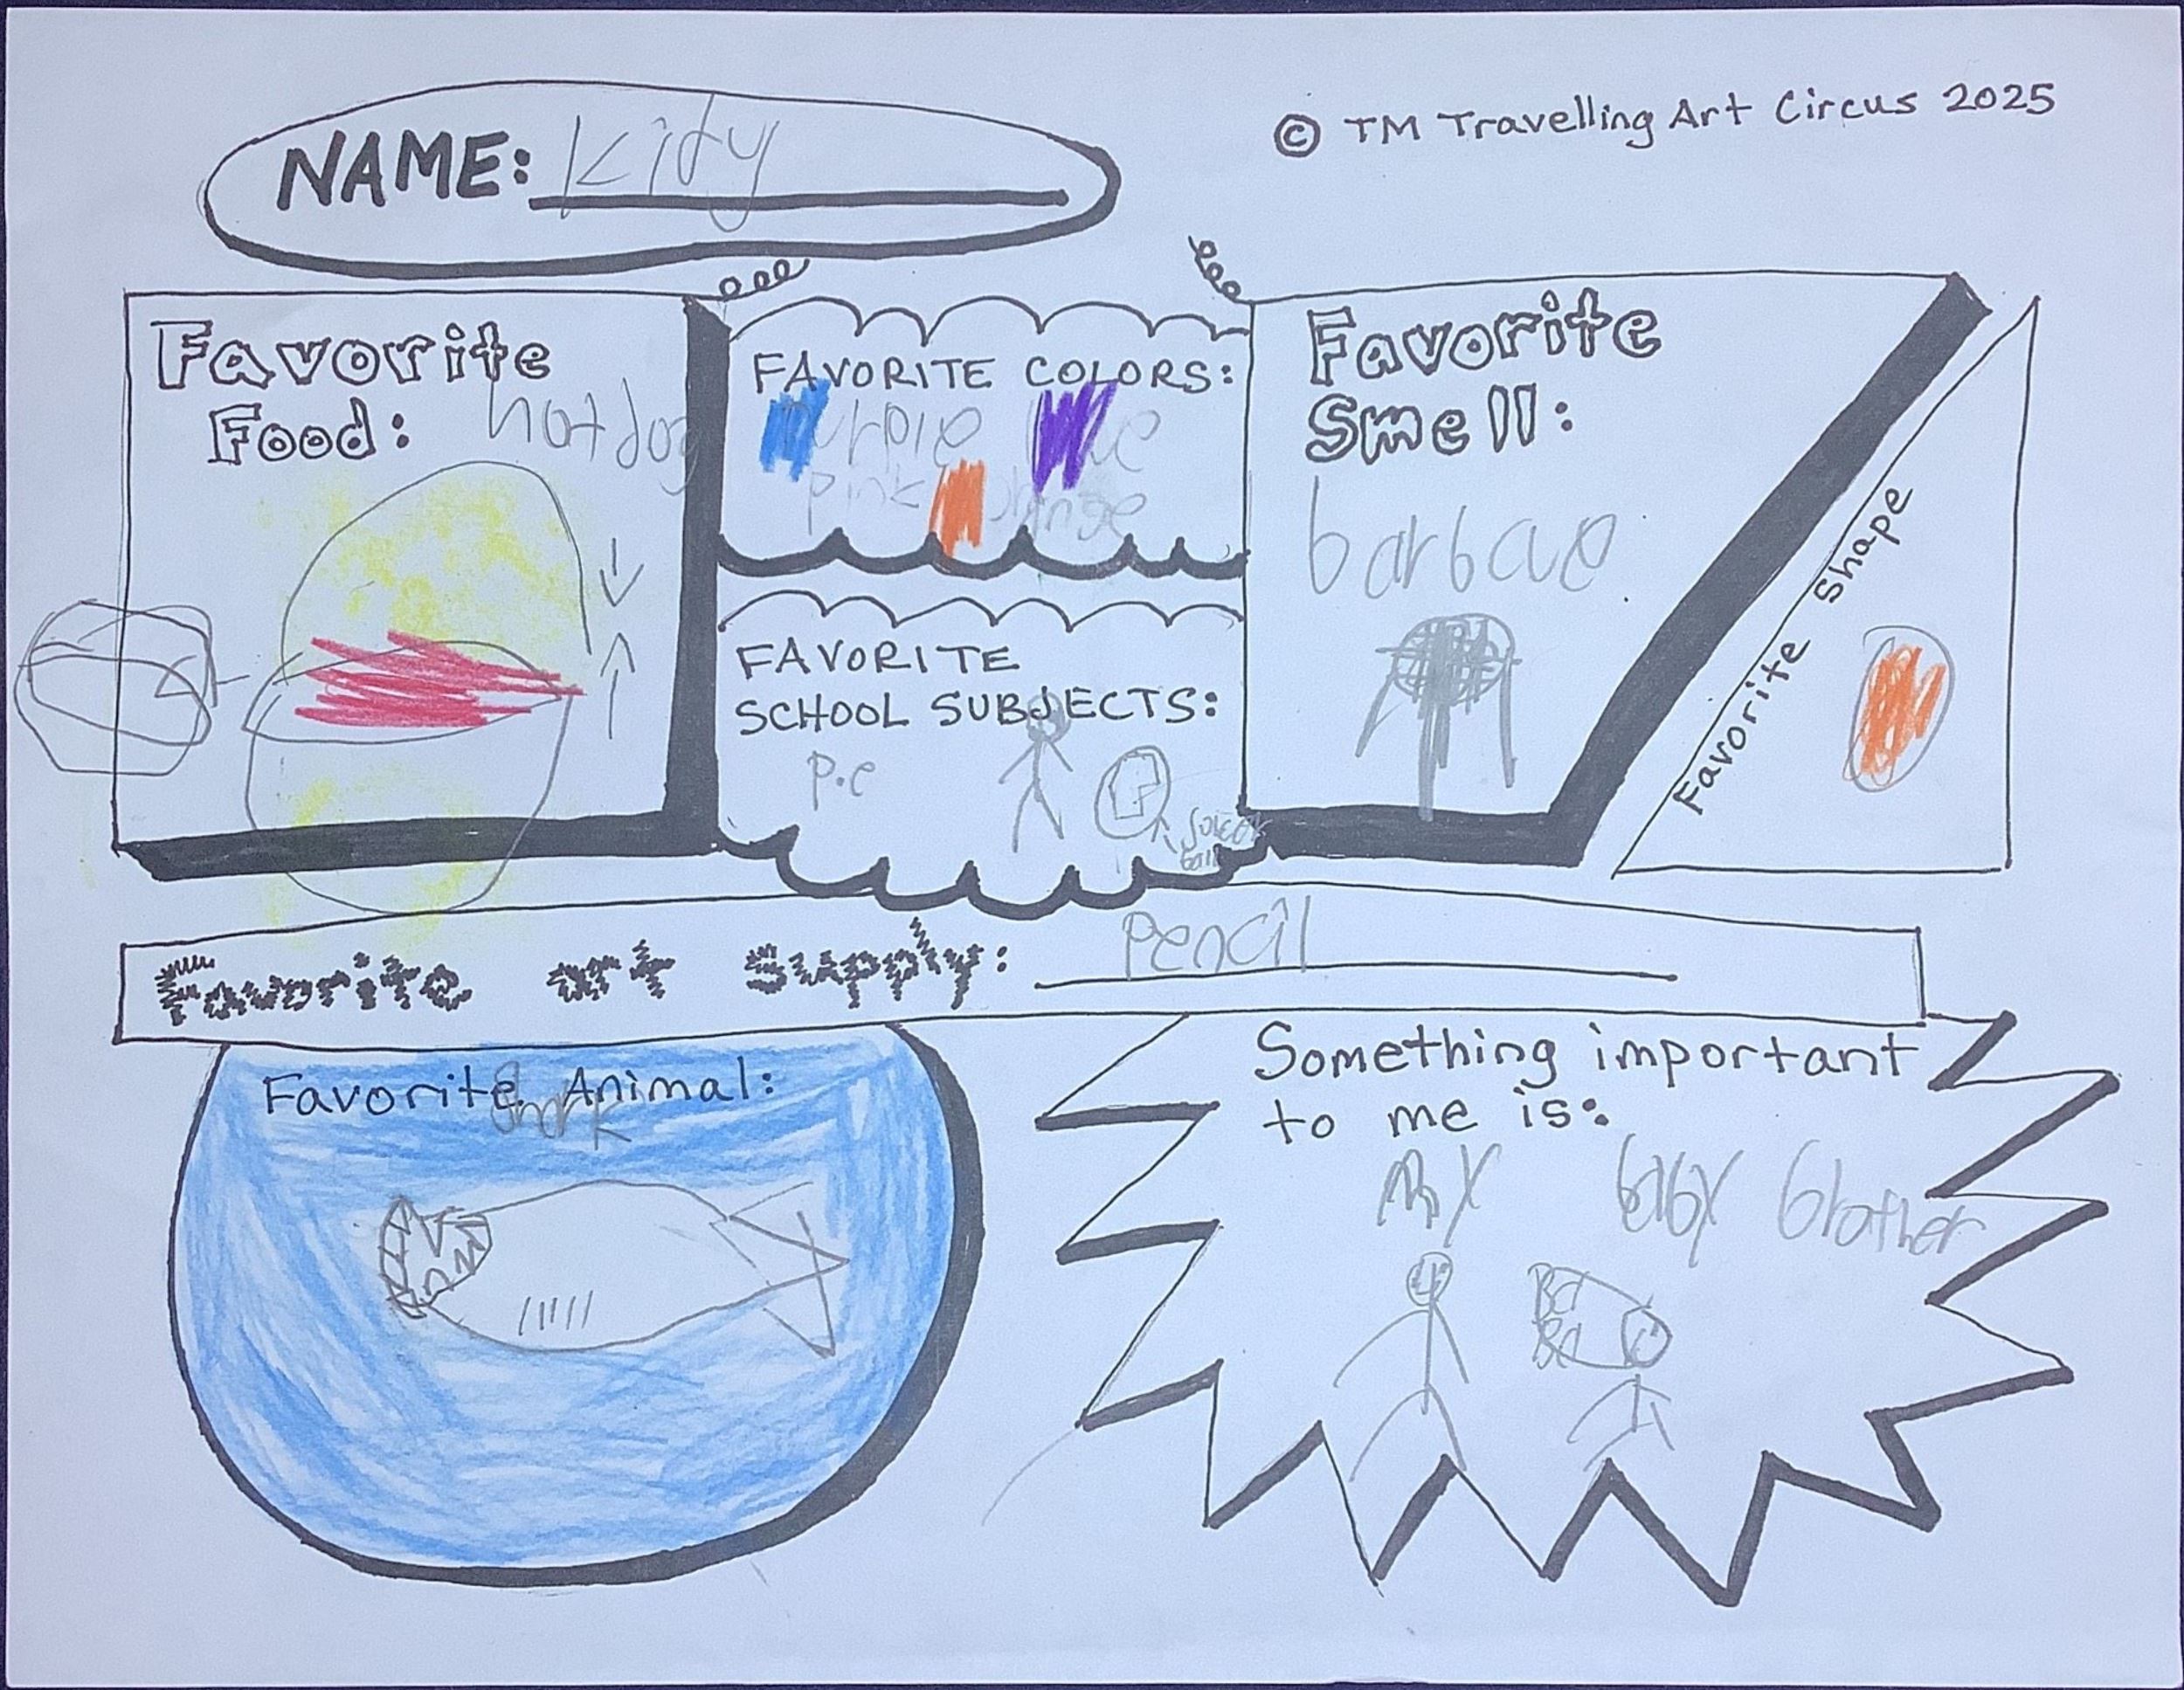 NAME: Kidy
© TM Travelling Art Circus 2025
Favorite
Food: hotdog
FAVORITE COLORS:
purple
pink
FAVORITE
SCHOOL SUBJECTS:
p.e
Favorite
Smell:
barbcue
Favorite Shape
Favorite art Supply: pencil
Favorite Animal:
Shark
Something important
to me is:
my baby brother